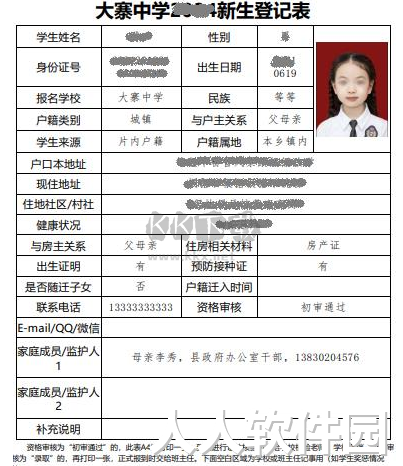 大寨中学2 4新生登记表
学生姓名 性别
身份证号 出生日期 0619
报名学校 大寨中学 民族 等等
户籍类别 城镇 与户主关系 父母亲
学生来源 片内户籍 户籍属地 本乡镇内
户口本地址
现住地址
住地社区/村社
健康状况
与房主关系 父母亲 住房相关材料 房产证
出生证明 有 预防接种证 有
是否随迁子女 否 户籍迁入时间
联系电话 13333333333 资格审核 初审通过
E-mail/QQ/微信
家庭成员/监护人1 母亲李秀，县政府办公室干部，13830204576
家庭成员/监护人2
补充说明
资格审核为“初审通过”的，此表A4 印一
核为“录取”的，再打印一张，正式报到时交给班主任。下面空白区域为学校或班主任记事用（如学生奖惩情况
KK下载
www.kkx.net
人人软件园